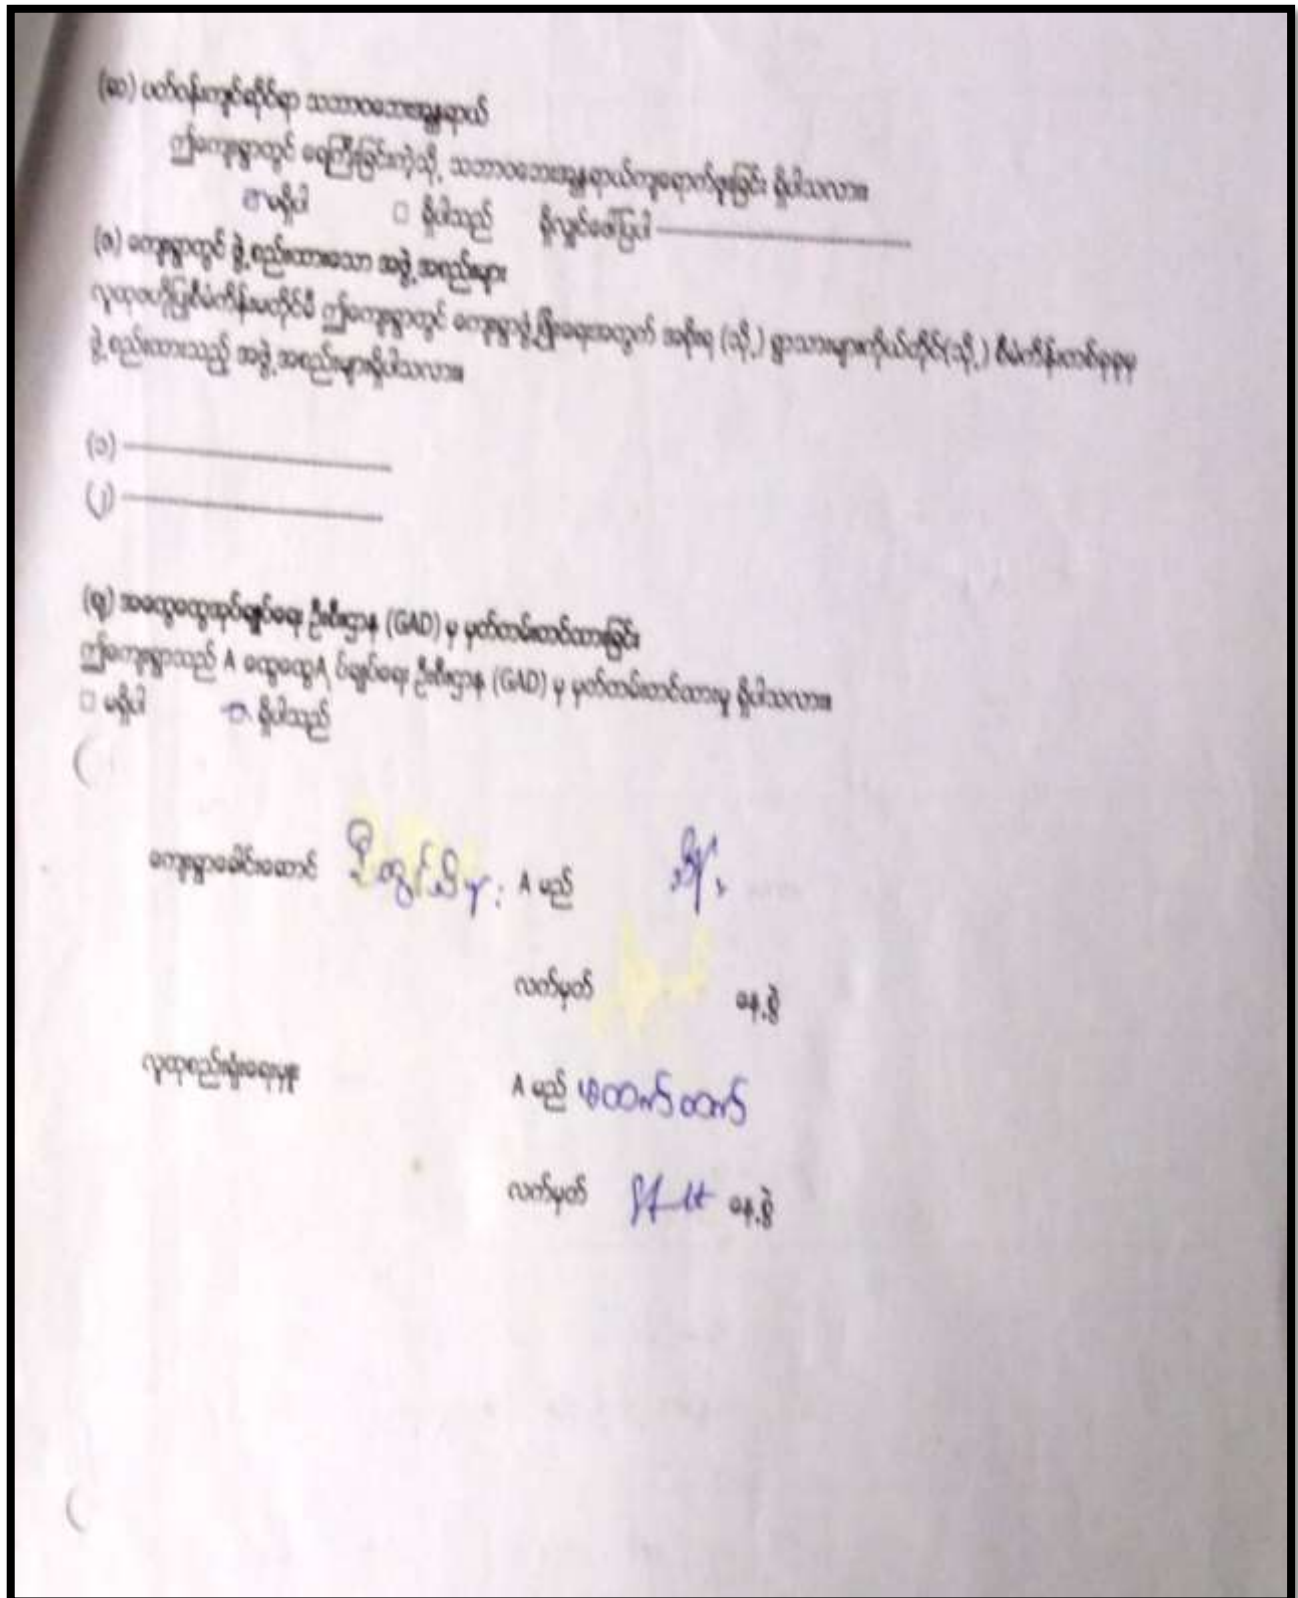 (ဆ) ပတ်ဝန်းကျင်ဆိုင်ရာ သဘာဝဘေးအန္တရာယ်
ဤကျေးရွာတွင် ရေကြီးခြင်းကဲ့သို့ သဘာဝဘေးအန္တရာယ်ကျရောက်ဖူးခြင်း ရှိပါသလား။
မရှိပါ □ ရှိပါသည် ရှိလျှင်ဖော်ပြပါ
(ဇ) ကျေးရွာတွင် ဖွဲ့စည်းထားသော အဖွဲ့အစည်းများ
လူထုဗဟိုပြုစီမံကိန်းမတိုင်မီ ဤကျေးရွာတွင် ကျေးရွာဖွံ့ဖြိုးရေးအတွက် အစိုးရ (သို့) ရွာသားများကိုယ်တိုင်(သို့) စီမံကိန်းတစ်ခုခုမှ
ဖွဲ့စည်းထားသည့် အဖွဲ့အစည်းများရှိပါသလား။
(၁)
(၂)
(ဈ) အထွေထွေအုပ်ချုပ်ရေး ဦးစီးဌာန (GAD) မှ မှတ်တမ်းတင်ထားခြင်း
ဤကျေးရွာသည် A ထွေထွေA ပ်ချုပ်ရေး ဦးစီးဌာန (GAD) မှ မှတ်တမ်းတင်ထားမှု ရှိပါသလား။
□ မရှိပါ ရှိပါသည်
ကျေးရွာခေါင်းဆောင် A မည်
လက်မှတ် နေ့စွဲ
လူထုစည်းရုံးရေးမှူး A မည် ထက်ထက်
လက်မှတ် နေ့စွဲ